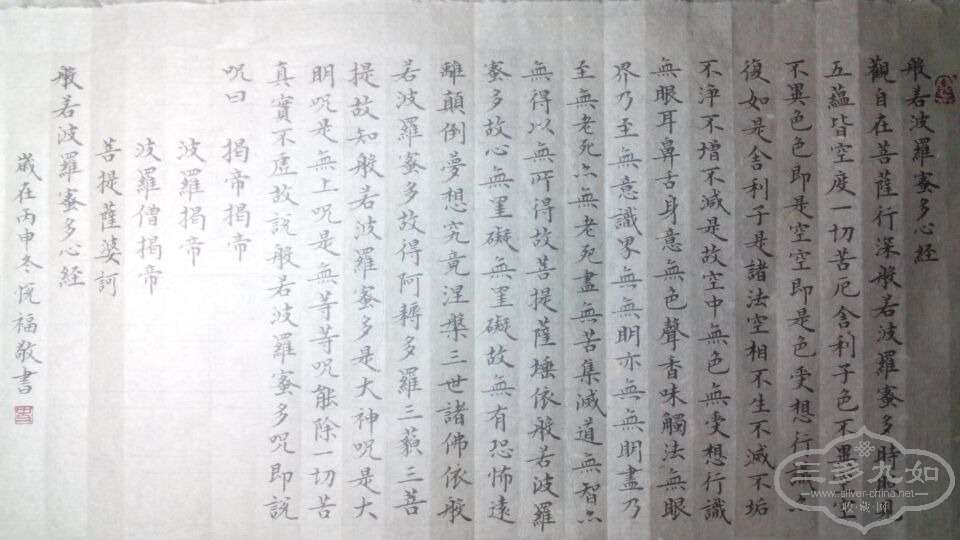 般若波羅蜜多心経
觀自在菩薩行深般若波羅蜜多時照見
五蘊皆空度一切苦厄舍利子色不異空
不異色色即是空空即是色受想行識亦
復如是舍利子是諸法空相不生不滅不垢
不淨不增不減是故空中無色無受想行識
無眼耳鼻舌身意無色聲香味觸法無眼
界乃至無意識界無無明亦無無明盡乃
至無老死亦無老死盡無苦集滅道無智亦
無得以無所得故菩提薩埵依般若波羅
蜜多故心無罣礙無罣礙故無有恐怖遠
離顛倒夢想究竟涅槃三世諸佛依般
若波羅蜜多故得阿耨多羅三藐三菩
提故知般若波羅蜜多是大神呪是大
明呪是無上呪是無等等呪能除一切苦
真實不虛故說般若波羅蜜多呪即說
呪曰 揭帝揭帝
波羅揭帝
波羅僧揭帝
菩提薩婆訶
般若波羅蜜多心経
歲在丙申冬悅福敬書
三多九如
www.silver-china.net
收藏网